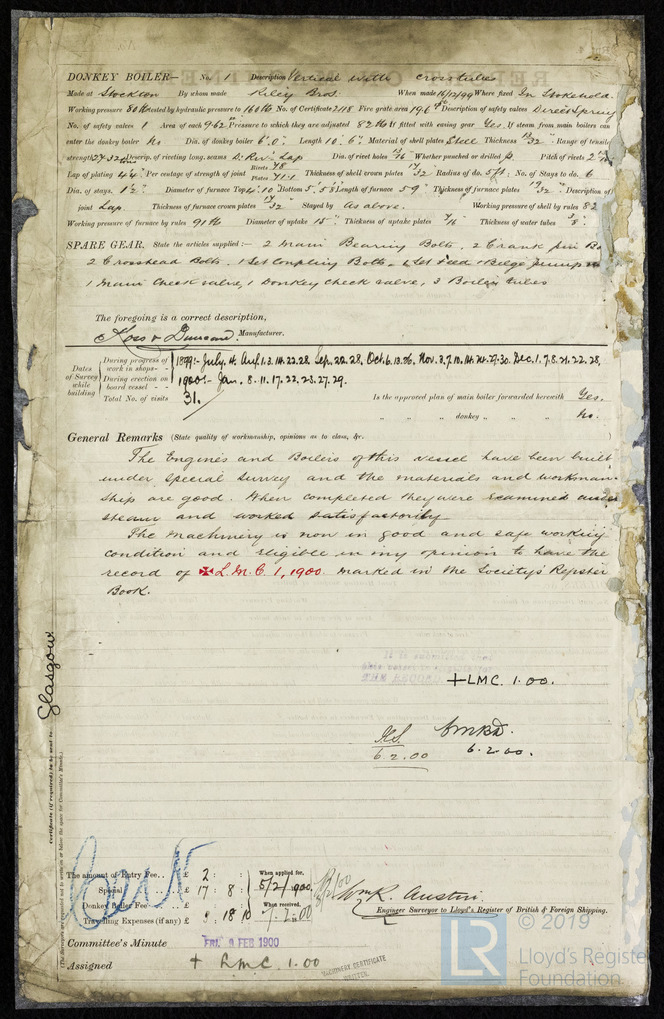 DONKEY BOILER— No. 1 Description Vertical with cross tubes
Made at Stockton By whom made Riley Bros. When made 16/12/99 Where fixed In Stokehold
Working pressure 80 lb tested by hydraulic pressure to 160 lb No. of Certificate 2118 Fire grate area 19.6 Description of safety valves Direct Spring
No. of safety valves 1 Area of each 9.62" Pressure to which they are adjusted 82 lb If fitted with easing gear Yes If steam from main boilers can
enter the donkey boiler No Dia. of donkey boiler 6'.0" Length 10'.6" Material of shell plates Steel Thickness 13/32" Range of tensile
strength 27-32 tons Descrip. of riveting long. seams D. Riv. Lap Dia. of rivet holes 13/16" Whether punched or drilled Pitch of rivets
Lap of plating 4 1/4" Per centage of strength of joint Rivets 78 Plates 71.1 Thickness of shell crown plates 17/32" Radius of do. 5 ft. No. of Stays to do. 6
Dia. of stays. 1 1/2" Diameter of furnace Top 4'.10" Bottom 5'.5" Length of furnace 5'9" Thickness of furnace plates 19/32" Description of
joint Lap Thickness of furnace crown plates 19/32" Stayed by As above. Working pressure of shell by rules 82
Working pressure of furnace by rules 91 lb Diameter of uptake 15" Thickness of uptake plates 7/16 Thickness of water tubes 3/8"
SPARE GEAR. State the articles supplied:— 2 Main Bearing Bolts, 2 Crank pin
2 Crosshead Bolts, 1 Set Coupling Bolts, 1 Set Feed & Bilge pump
1 Main Check valve, 1 Donkey Check valve, 3 Boiler tubes
The foregoing is a correct description,
Ross & Duncan Manufacturer.
Dates of Survey while building
During progress of work in shops - - 1899:- July. 4. Aug. 1. 3. 14. 22. 28. Sep. 22. 28. Oct. 6. 13. 26. Nov. 3. 7. 10. 14. 24. 27. 30. Dec. 1. 7. 8. 21. 22. 28.
During erection on board vessel - - 1900:- Jan. 8. 11. 17. 22. 23. 27. 29.
Total No. of visits 31.
Is the approved plan of main boiler forwarded herewith Yes.
" " " donkey " " " No.
General Remarks (State quality of workmanship, opinions as to class, &c. )
The Engines and Boilers of this vessel have been built
under special survey and the materials and workman-
ship are good. When completed they were examined under
steam and worked satisfactorily
The machinery is now in good and safe working
condition and eligible in my opinion to have the
record of ✠ L.M.C. 1, 1900 marked in the Society's Register
Book.
Glasgow
Certificate (if required) to be sent to
(The Surveyors are requested not to write on or below the space for Committee's Minute.)
It is submitted that
this vessel is eligible for
THE RECORD + LMC. 1.00.
6.2.00
6.2.00.
The amount of Entry Fee.. £ 2 : :
Special £ 17 : 8 :
Donkey Boiler Fee £ : :
Travelling Expenses (if any) £ : 18 : 10
When applied for, 5/2/1900
When received, 7.2.00
Wm. R. Austin
Engineer Surveyor to Lloyd's Register of British & Foreign Shipping.
Committee's Minute FRI. 9 FEB 1900
Assigned + LMC 1.00
MACHINERY CERTIFICATE WRITTEN.
© 2019
LR Lloyd's Register
Foundation